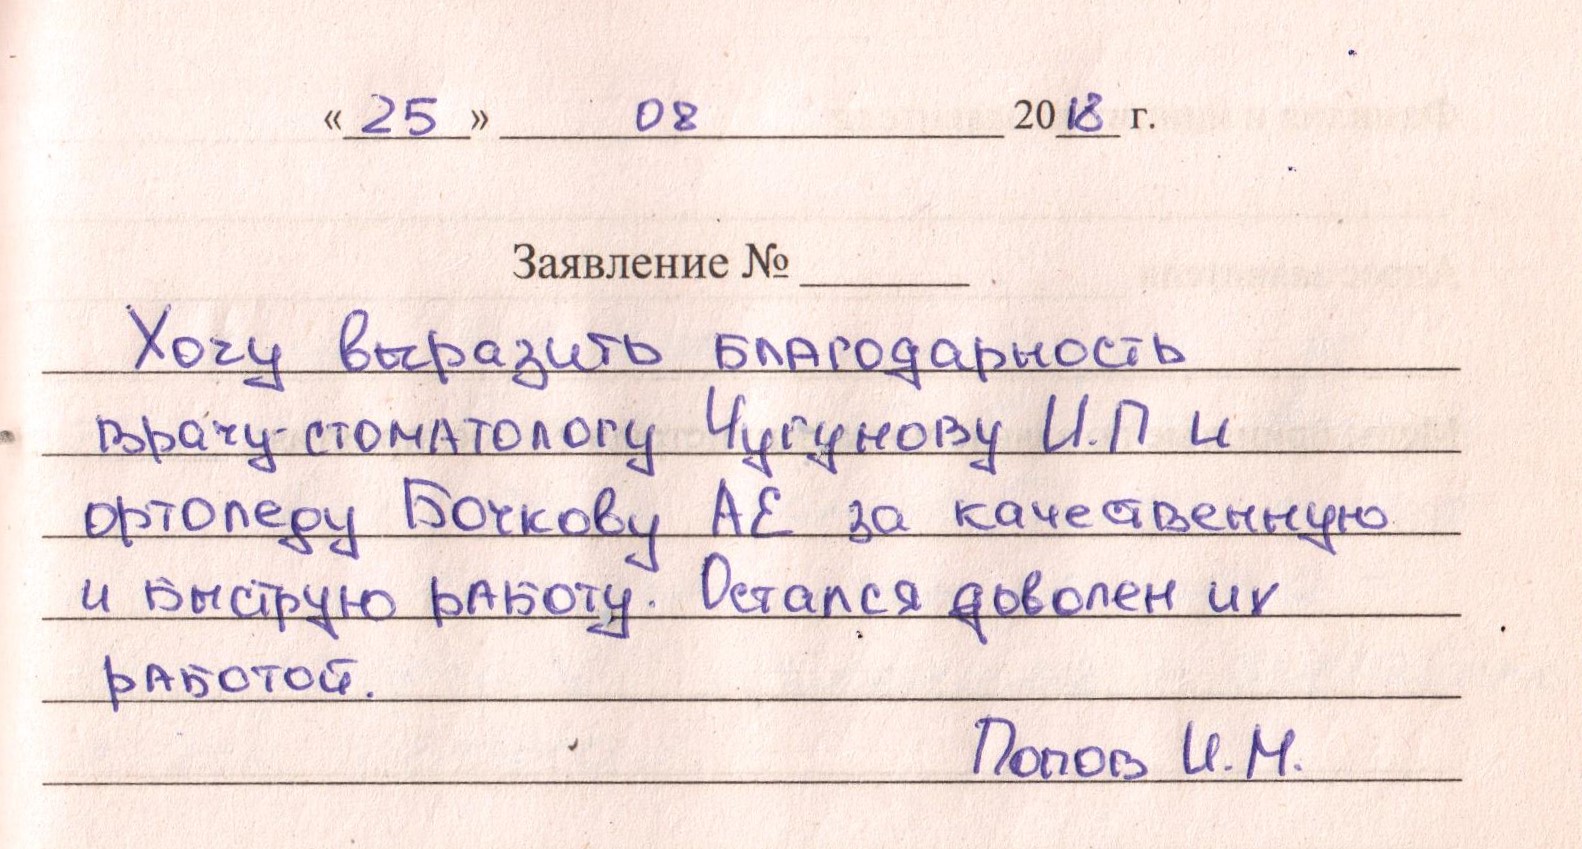 «25» 08 2018 г.
Заявление № ______
Хочу выразить благодарность
врачу-стоматологу Чугунову И.П и
ортопеду Бочкову АЕ за качественную
и быструю работу. Остался доволен их
работой.
Попов И.М.